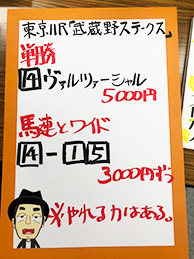 東京11R「武蔵野ステークス」
単勝
14ヴァルツァーシャル
5000円
馬連とワイド
14-15
3000円ずつ
※やれる力はある。